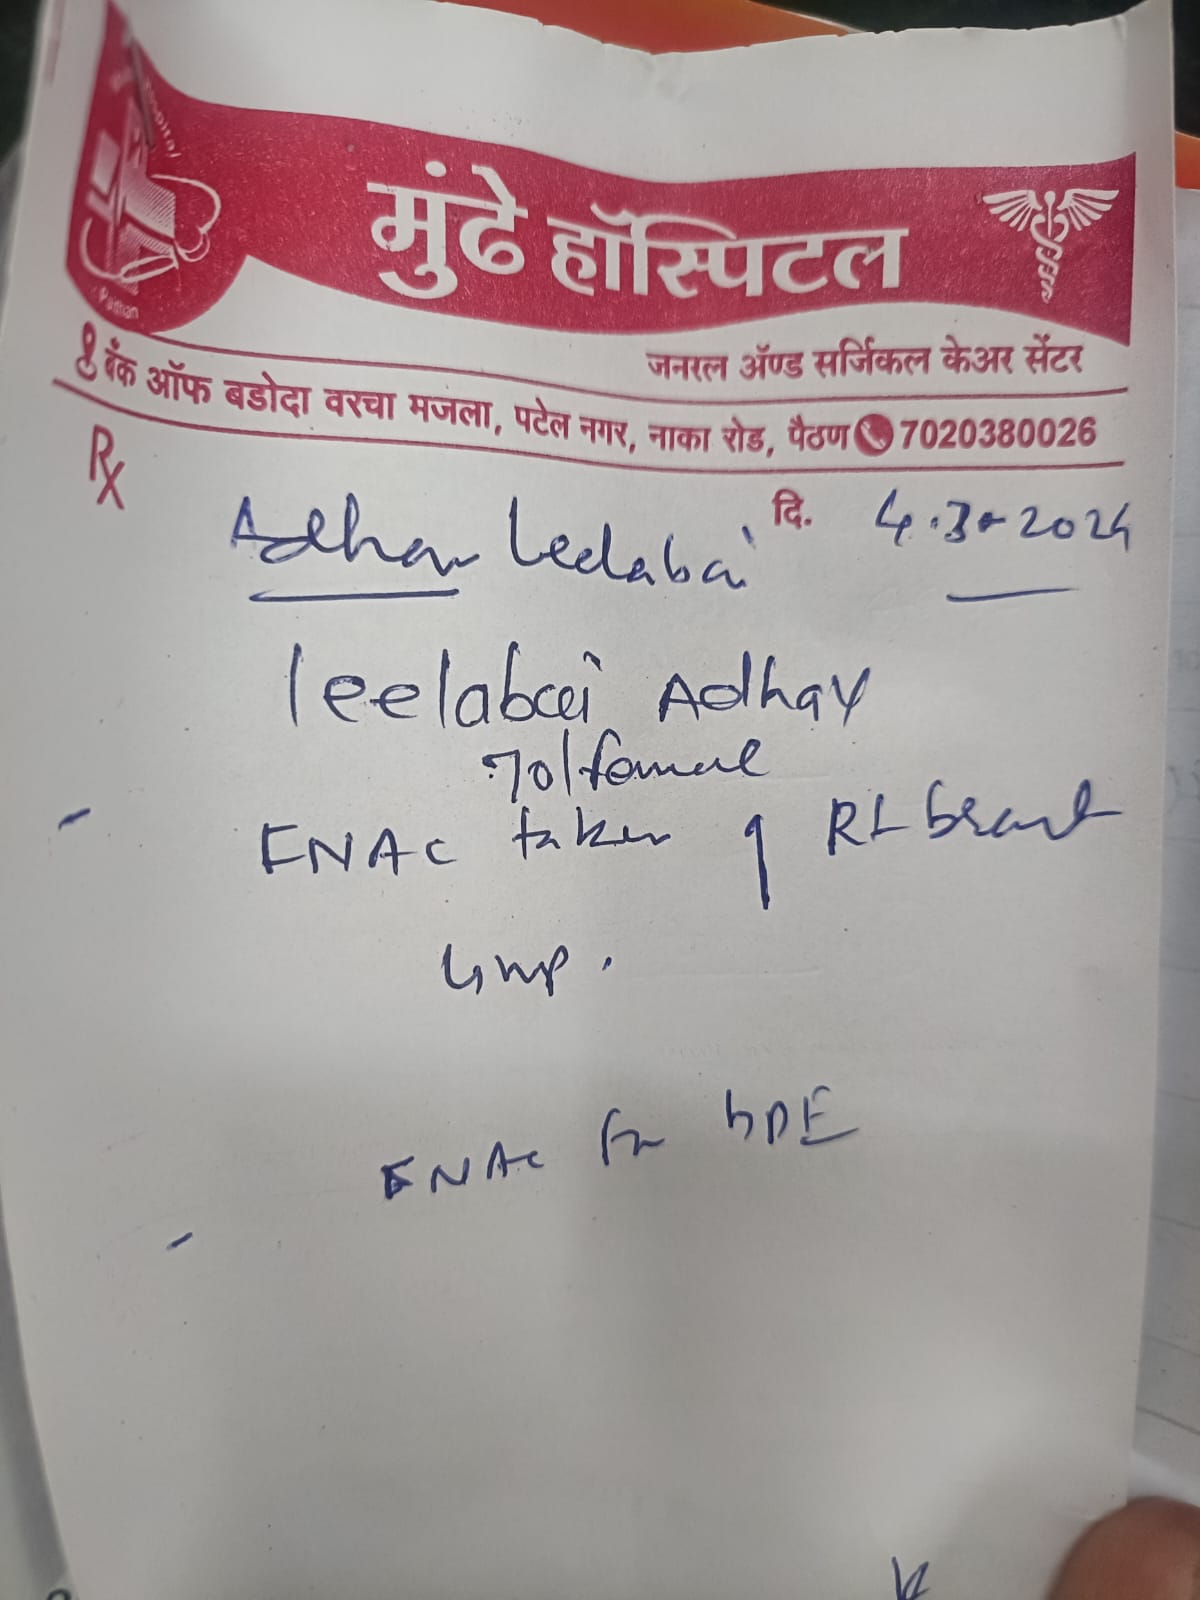 Hospital
Paithan
मुंढे हॉस्पिटल
जनरल ॲण्ड सर्जिकल केअर सेंटर
बँक ऑफ बडोदा वरचा मजला, पटेल नगर, नाका रोड, पैठण 7020380026
Rx
Adhav Leelabai दि. 4.3.2024
leelabai Adhav
70/female
FNAC taken
lump.
FNAC for HPE